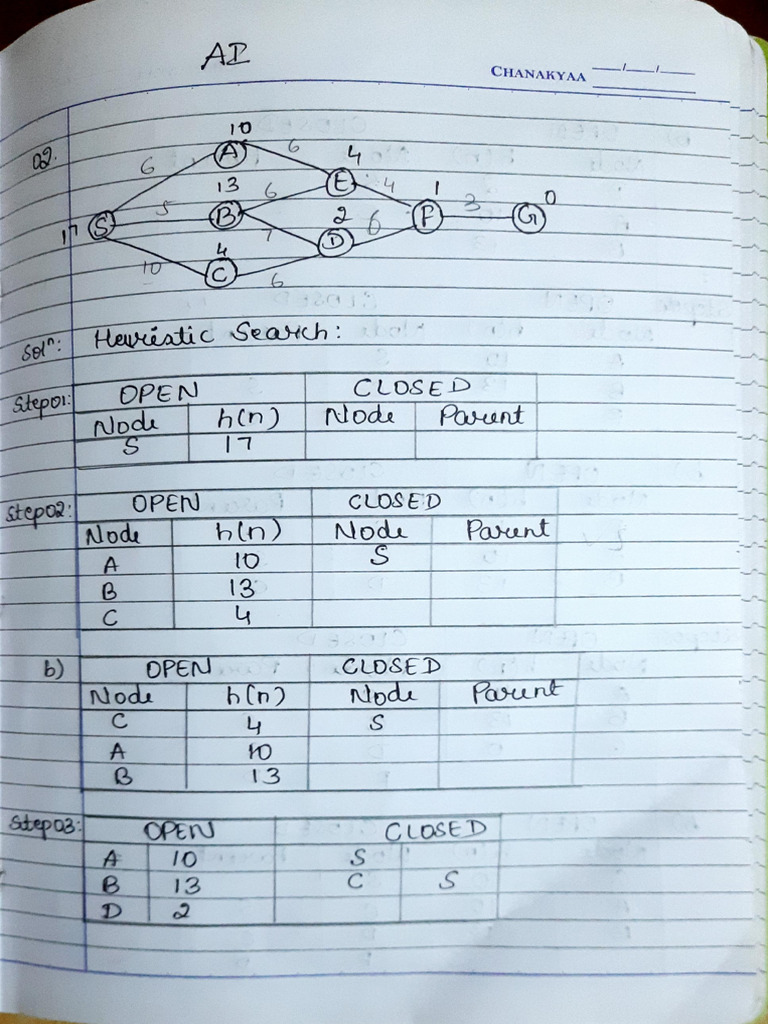 AI
CHANAKYAA
Q2.
10
6
A
6
4
E
4
13
6
B
5
S
17
7
2
D
6
1
F
3
G
0
4
C
10
6
Solⁿ: Heuristic Search:
Step01: OPEN CLOSED
Node h(n) Node Parent
S 17
Step02: OPEN CLOSED
Node h(n) Node Parent
A 10 S
B 13
C 4
b) OPEN CLOSED
Node h(n) Node Parent
C 4 S
A 10
B 13
Step03: OPEN CLOSED
A 10 S
B 13 C S
D 2